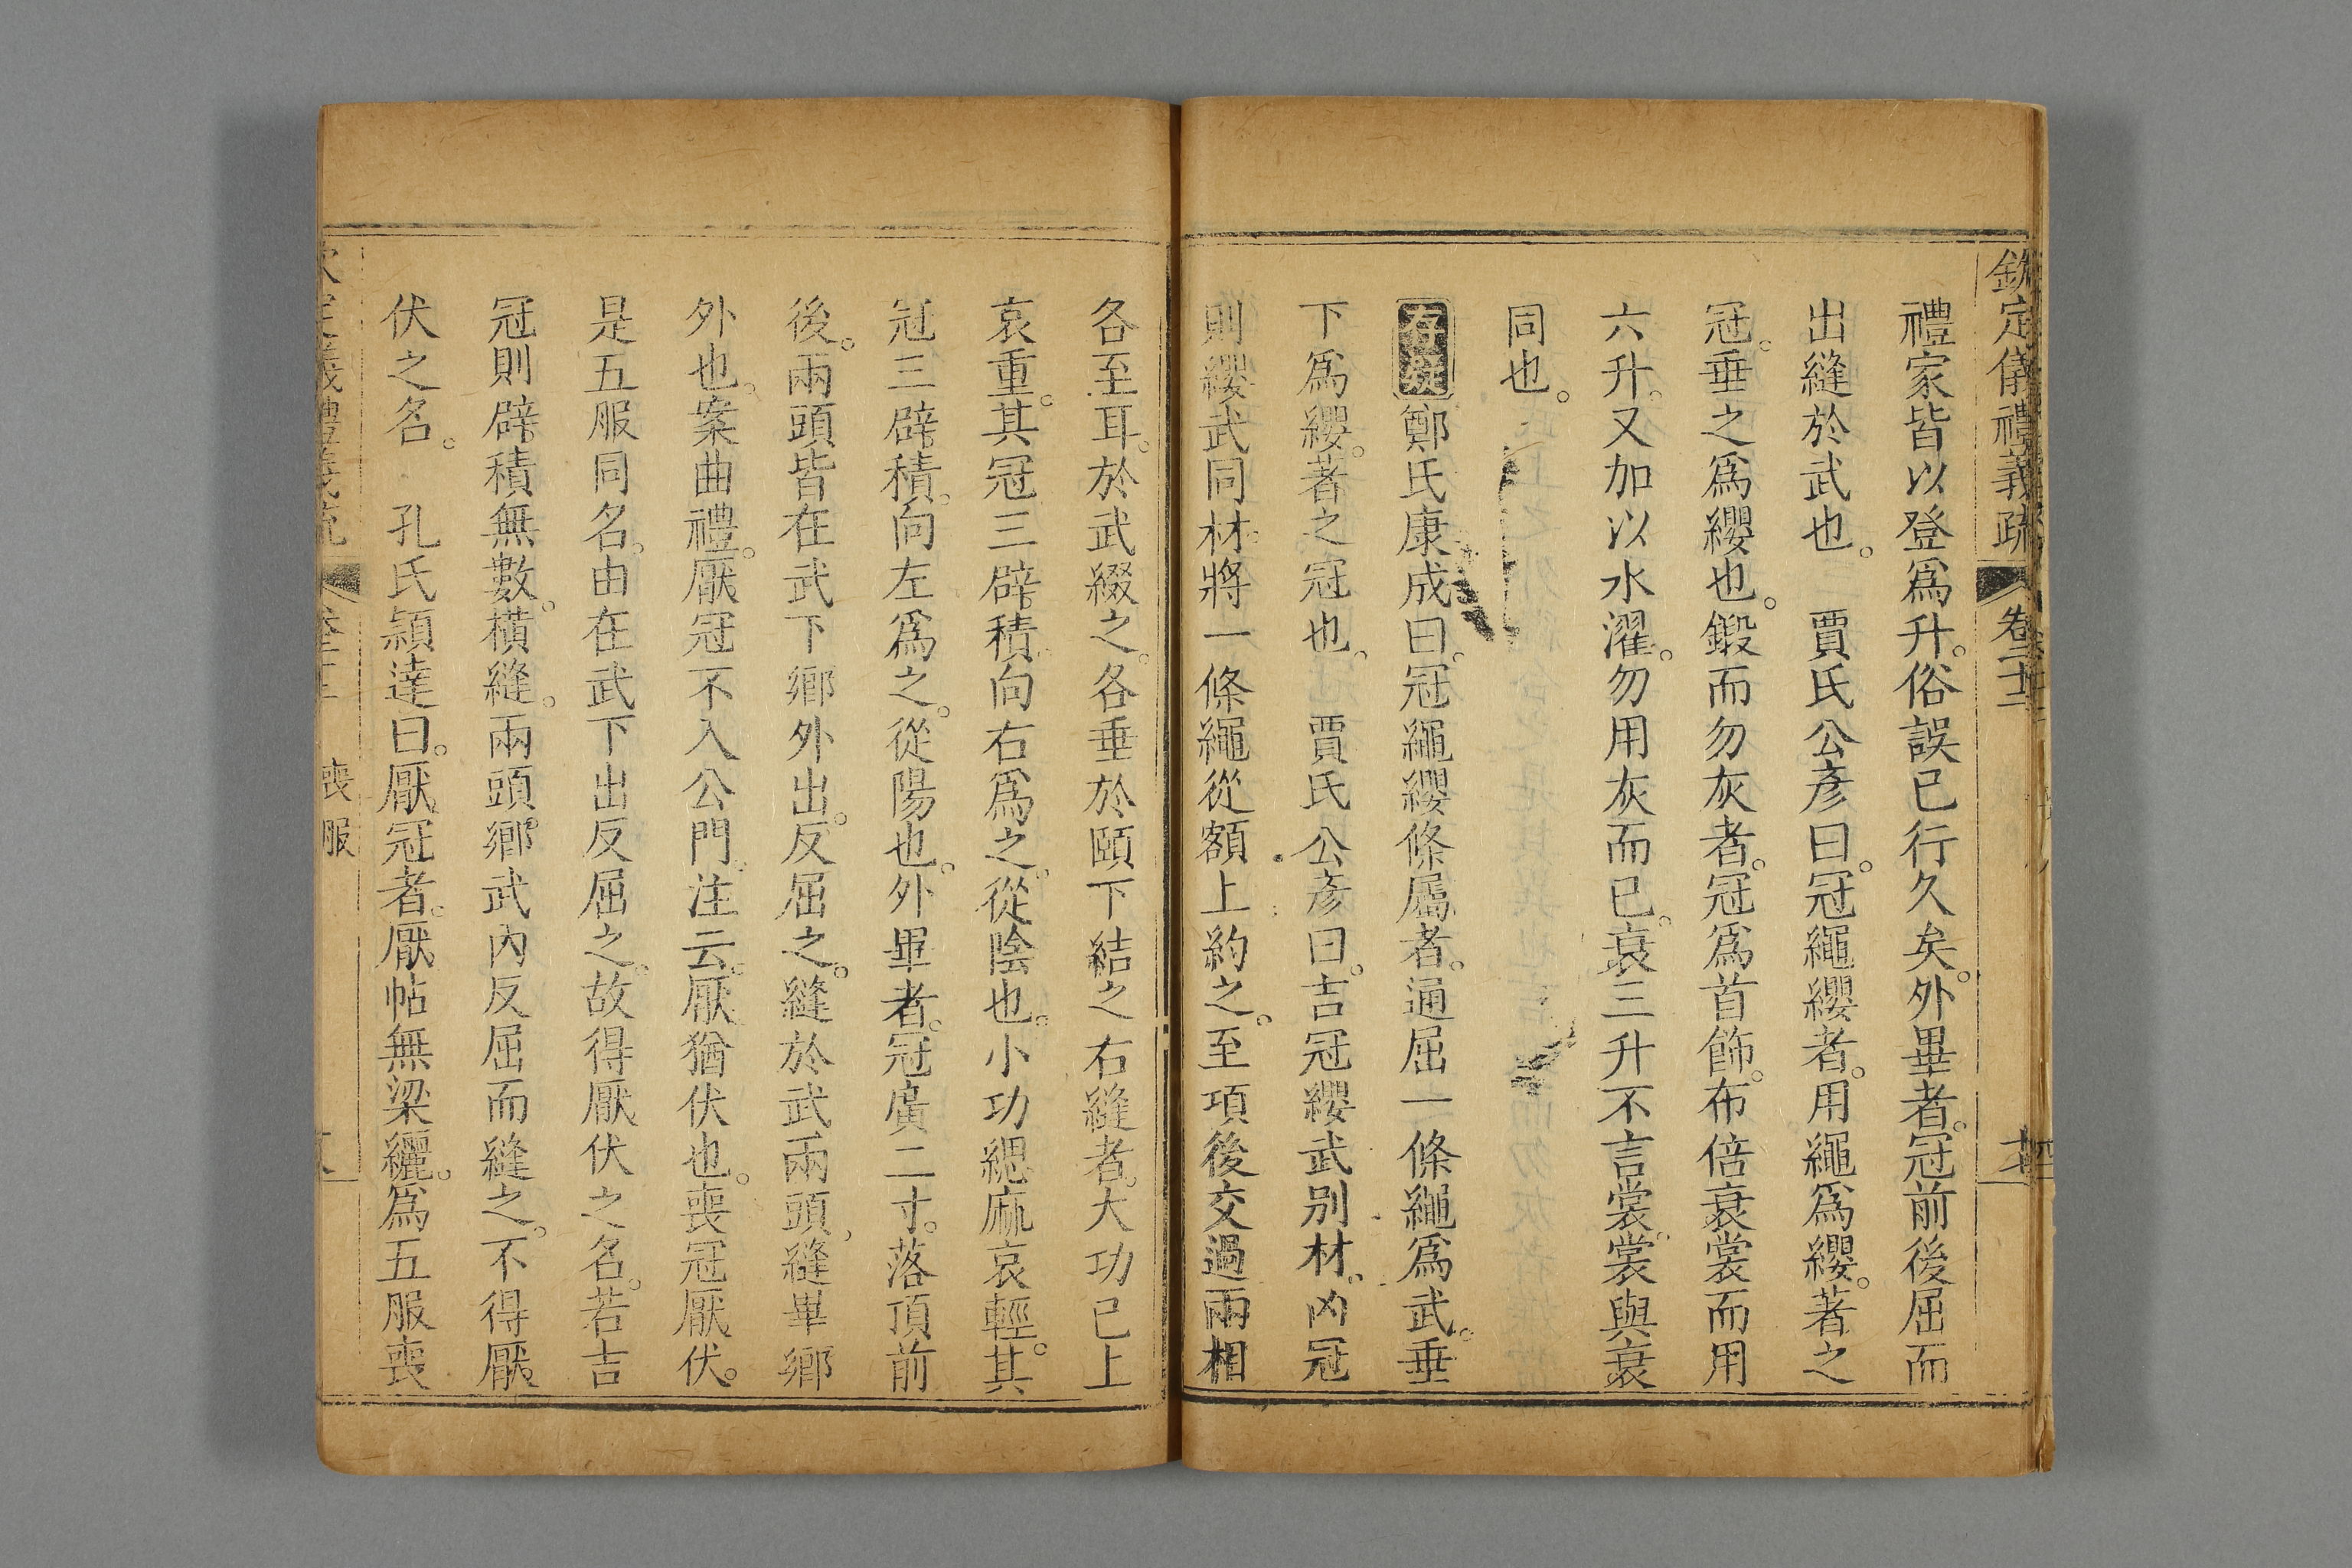 欽定儀禮義疏 卷二十二
禮家皆以登爲升。俗誤已行久矣。外畢者。冠前後屈而
出縫於武也。 賈氏公彥曰。冠繩纓者。用繩爲纓。著之
冠。垂之爲纓也。鍛而勿灰者。冠爲首飾。布倍衰裳而用
六升。又加以水濯。勿用灰而已。衰三升不言裳。裳與衰
同也。
存疑 鄭氏康成曰。冠繩纓條屬者。通屈一條繩爲武。垂
下爲纓。著之冠也。 賈氏公彥曰。吉冠纓武別材。凶冠
則纓武同材。將一條繩從額上約之。至項後交過兩相
各至耳。於武綴之。各垂於頤下結之右縫者。大功已上
哀重。其冠三辟積向右爲之。從陰也。小功緦麻哀輕。其
冠三辟積。向左爲之。從陽也。外畢者。冠廣二寸。落頂前
後。兩頭皆在武下鄉外出。反屈之。縫於武兩頭。縫畢鄉
外也。案曲禮。厭冠不入公門。注云。厭猶伏也。喪冠厭伏。
是五服同名。由在武下出反屈之。故得厭伏之名。若吉
冠則辟積無數。橫縫。兩頭鄉武內反屈而縫之。不得厭
伏之名。 孔氏頴達曰。厭冠者。厭帖無梁纚。爲五服喪
喪服